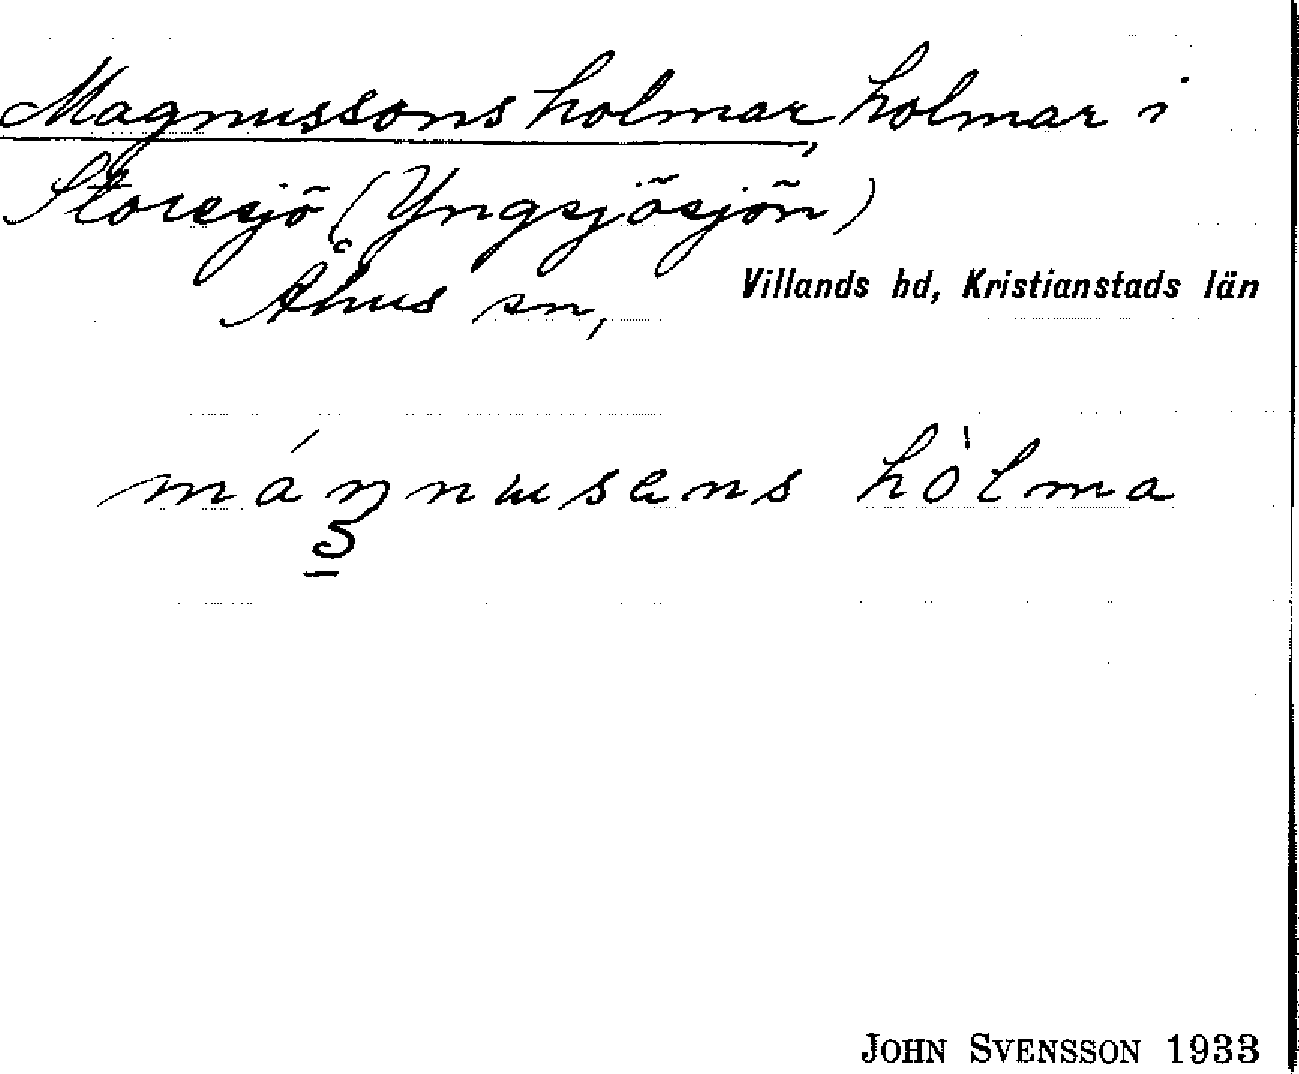 Magnussons holmar, holmar i
Storesjö (Yngsjösjön)
Åhus sn, Villands hd, Kristianstads län
máŋnusens hòlma
JOHN SVENSSON 1933